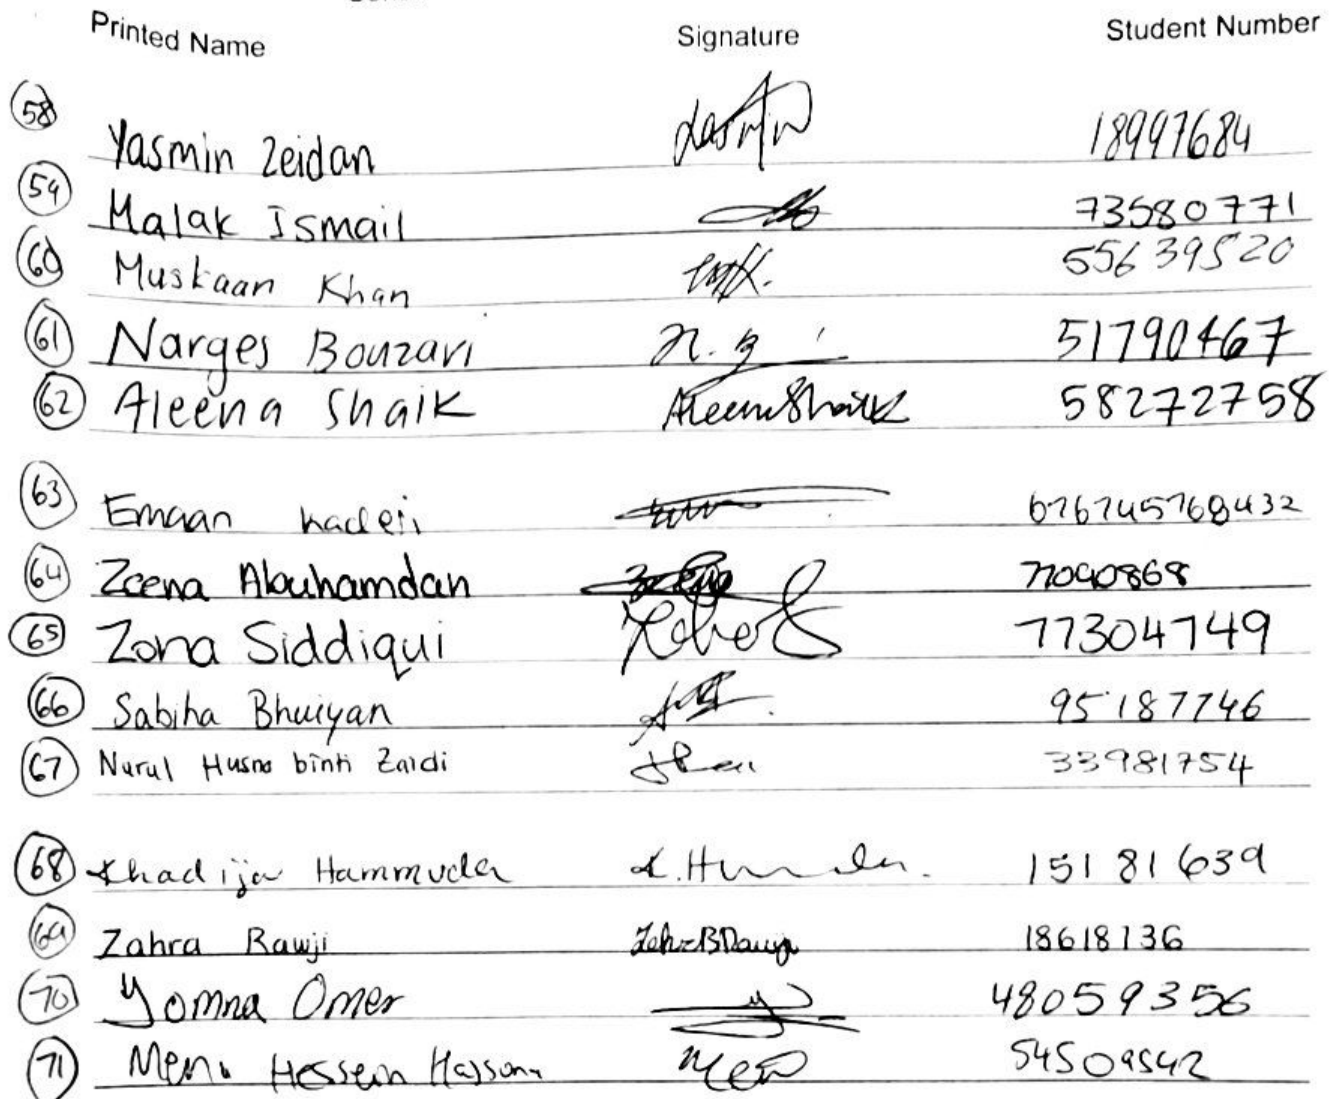 Printed Name Signature Student Number
58 Yasmin Zeidan 18997684
59 Malak Ismail 73580771
60 Muskaan Khan 55639520
61 Narges Bouzari n.B 51790467
62 Aleena Shaik AleenaShaik 58272758
63 Emaan 676745768432
64 Zeena Abuhamdan 77090868
65 Zona Siddiqui 77304749
66 Sabiha Bhuiyan 95187746
67 Nurul Husna binti Zaidi 33981754
68 Khadija Hammuda 15181639
69 Zahra Rawji 18618136
70 Yomna Omer 48059356
71 Hessein 54509542